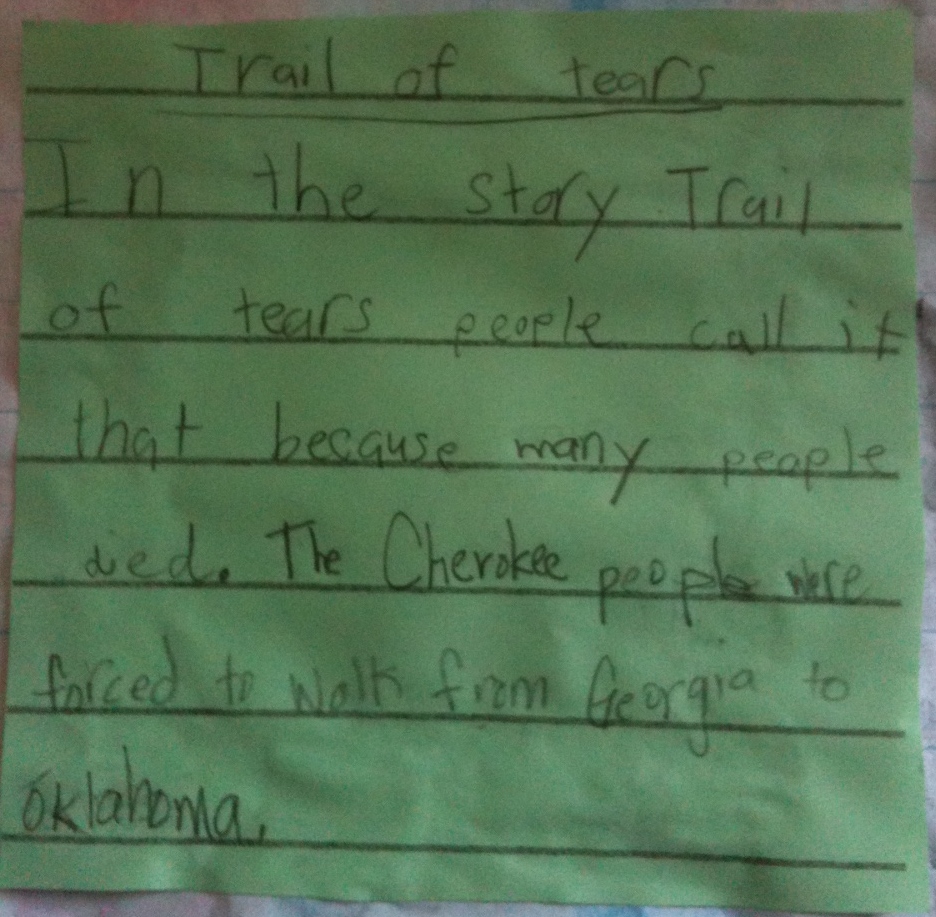 Trail of tears
In the story Trail
of tears people call it
that because many people
died. The Cherokee people were
forced to walk from Georgia to
oklahoma.